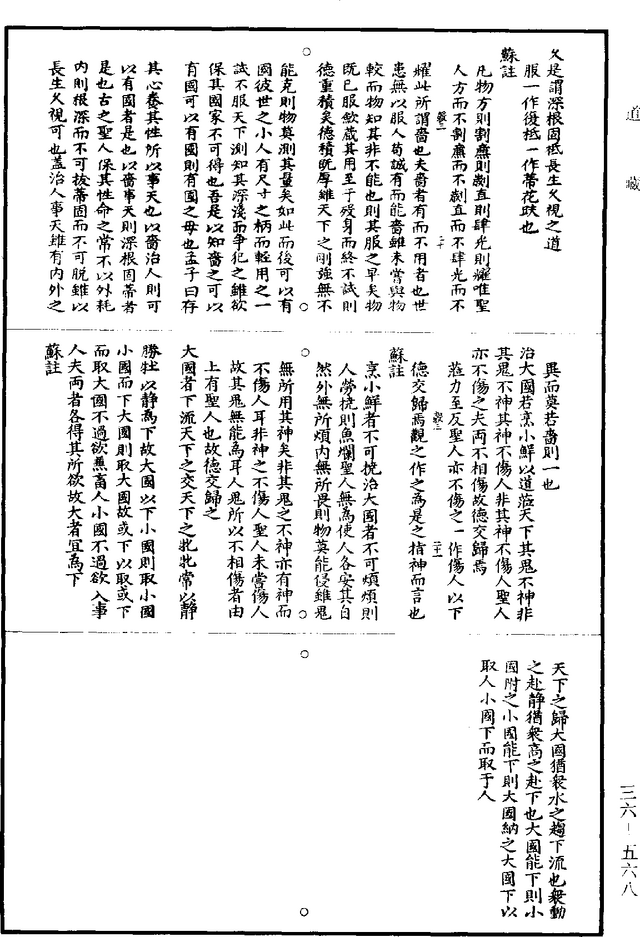 道藏
久是謂深根固柢長生久視之道
服一作復柢一作蔕花趺也
蘇註
凡物方則割廉則劌直則肆光則耀唯聖
人方而不割廉而不劌直而不肆光而不
耀此所謂嗇也夫嗇者有而不用者也世
患無以服人苟誠有而能嗇雖未嘗與物
較而物知其非不能也則其服之早矣物
既已服斂藏其用至于殁身而終不試則
德重積矣德積既厚雖天下之剛強無不
能克則物莫測其量矣如此而後可以有
國彼世之小人有尺寸之柄而輕用之一
試不服天下測知其深淺而爭犯之雖欲
保其國家不可得也吾是以知嗇之可以
有國可以有國則有國之母也孟子曰存
其心養其性所以事天也以嗇治人則可
以有國者是也以嗇事天則深根固蔕者
是也古之聖人保其性命之常不以外耗
内則根深而不可拔蔕固而不可脱雖以
長生久視可也蓋治人事天雖有内外之
異而莫若嗇則一也
治大國若烹小鮮以道蒞天下其鬼不神非
其鬼不神其神不傷人非其神不傷人聖人
亦不傷之夫兩不相傷故德交歸焉
蒞力至反聖人亦不傷之一作傷人以下
德交歸焉觀之作之為是之指神而言也
蘇註
烹小鮮者不可撓治大國者不可煩煩則
人勞撓則魚爛聖人無為使人各安其自
然外無所煩内無所畏則物莫能侵雖鬼
無所用其神矣非其鬼之不神亦有神而
不傷人耳非神之不傷人聖人未嘗傷人
故其鬼無能為耳人鬼所以不相傷者由
上有聖人也故德交歸之
大國者下流天下之交天下之牝牝常以靜
勝牡以靜為下故大國以下小國則取小國
小國而下大國則取大國故或下以取或下
而取大國不過欲兼畜人小國不過欲入事
人夫兩者各得其所欲故大者宜為下
蘇註
天下之歸大國猶衆水之趨下流也衆動
之赴靜猶衆高之赴下也大國能下則小
國附之小國能下則大國納之大國下以
取人小國下而取于人
三六-五六八